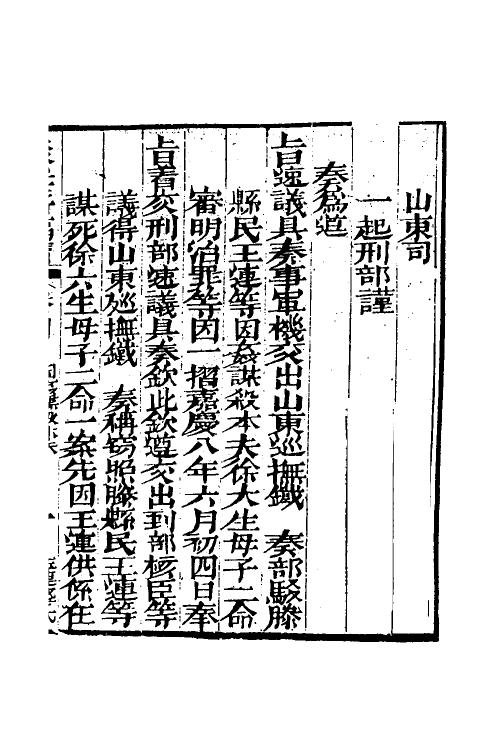 山東司
一起刑部謹
奏爲遵
旨速議具奏事軍機交出山東廵撫鐵　奏部駁滕
縣民王連等因姦謀殺本夫徐大生母子二命
審明治罪等因一摺嘉慶八年六月初四日奉
旨着交刑部速議具奏欽此欽遵交出到部核臣等
議得山東廵撫鐵　奏稱窃照滕縣民王連等
謀死徐六生母子二命一案先因王連供係在